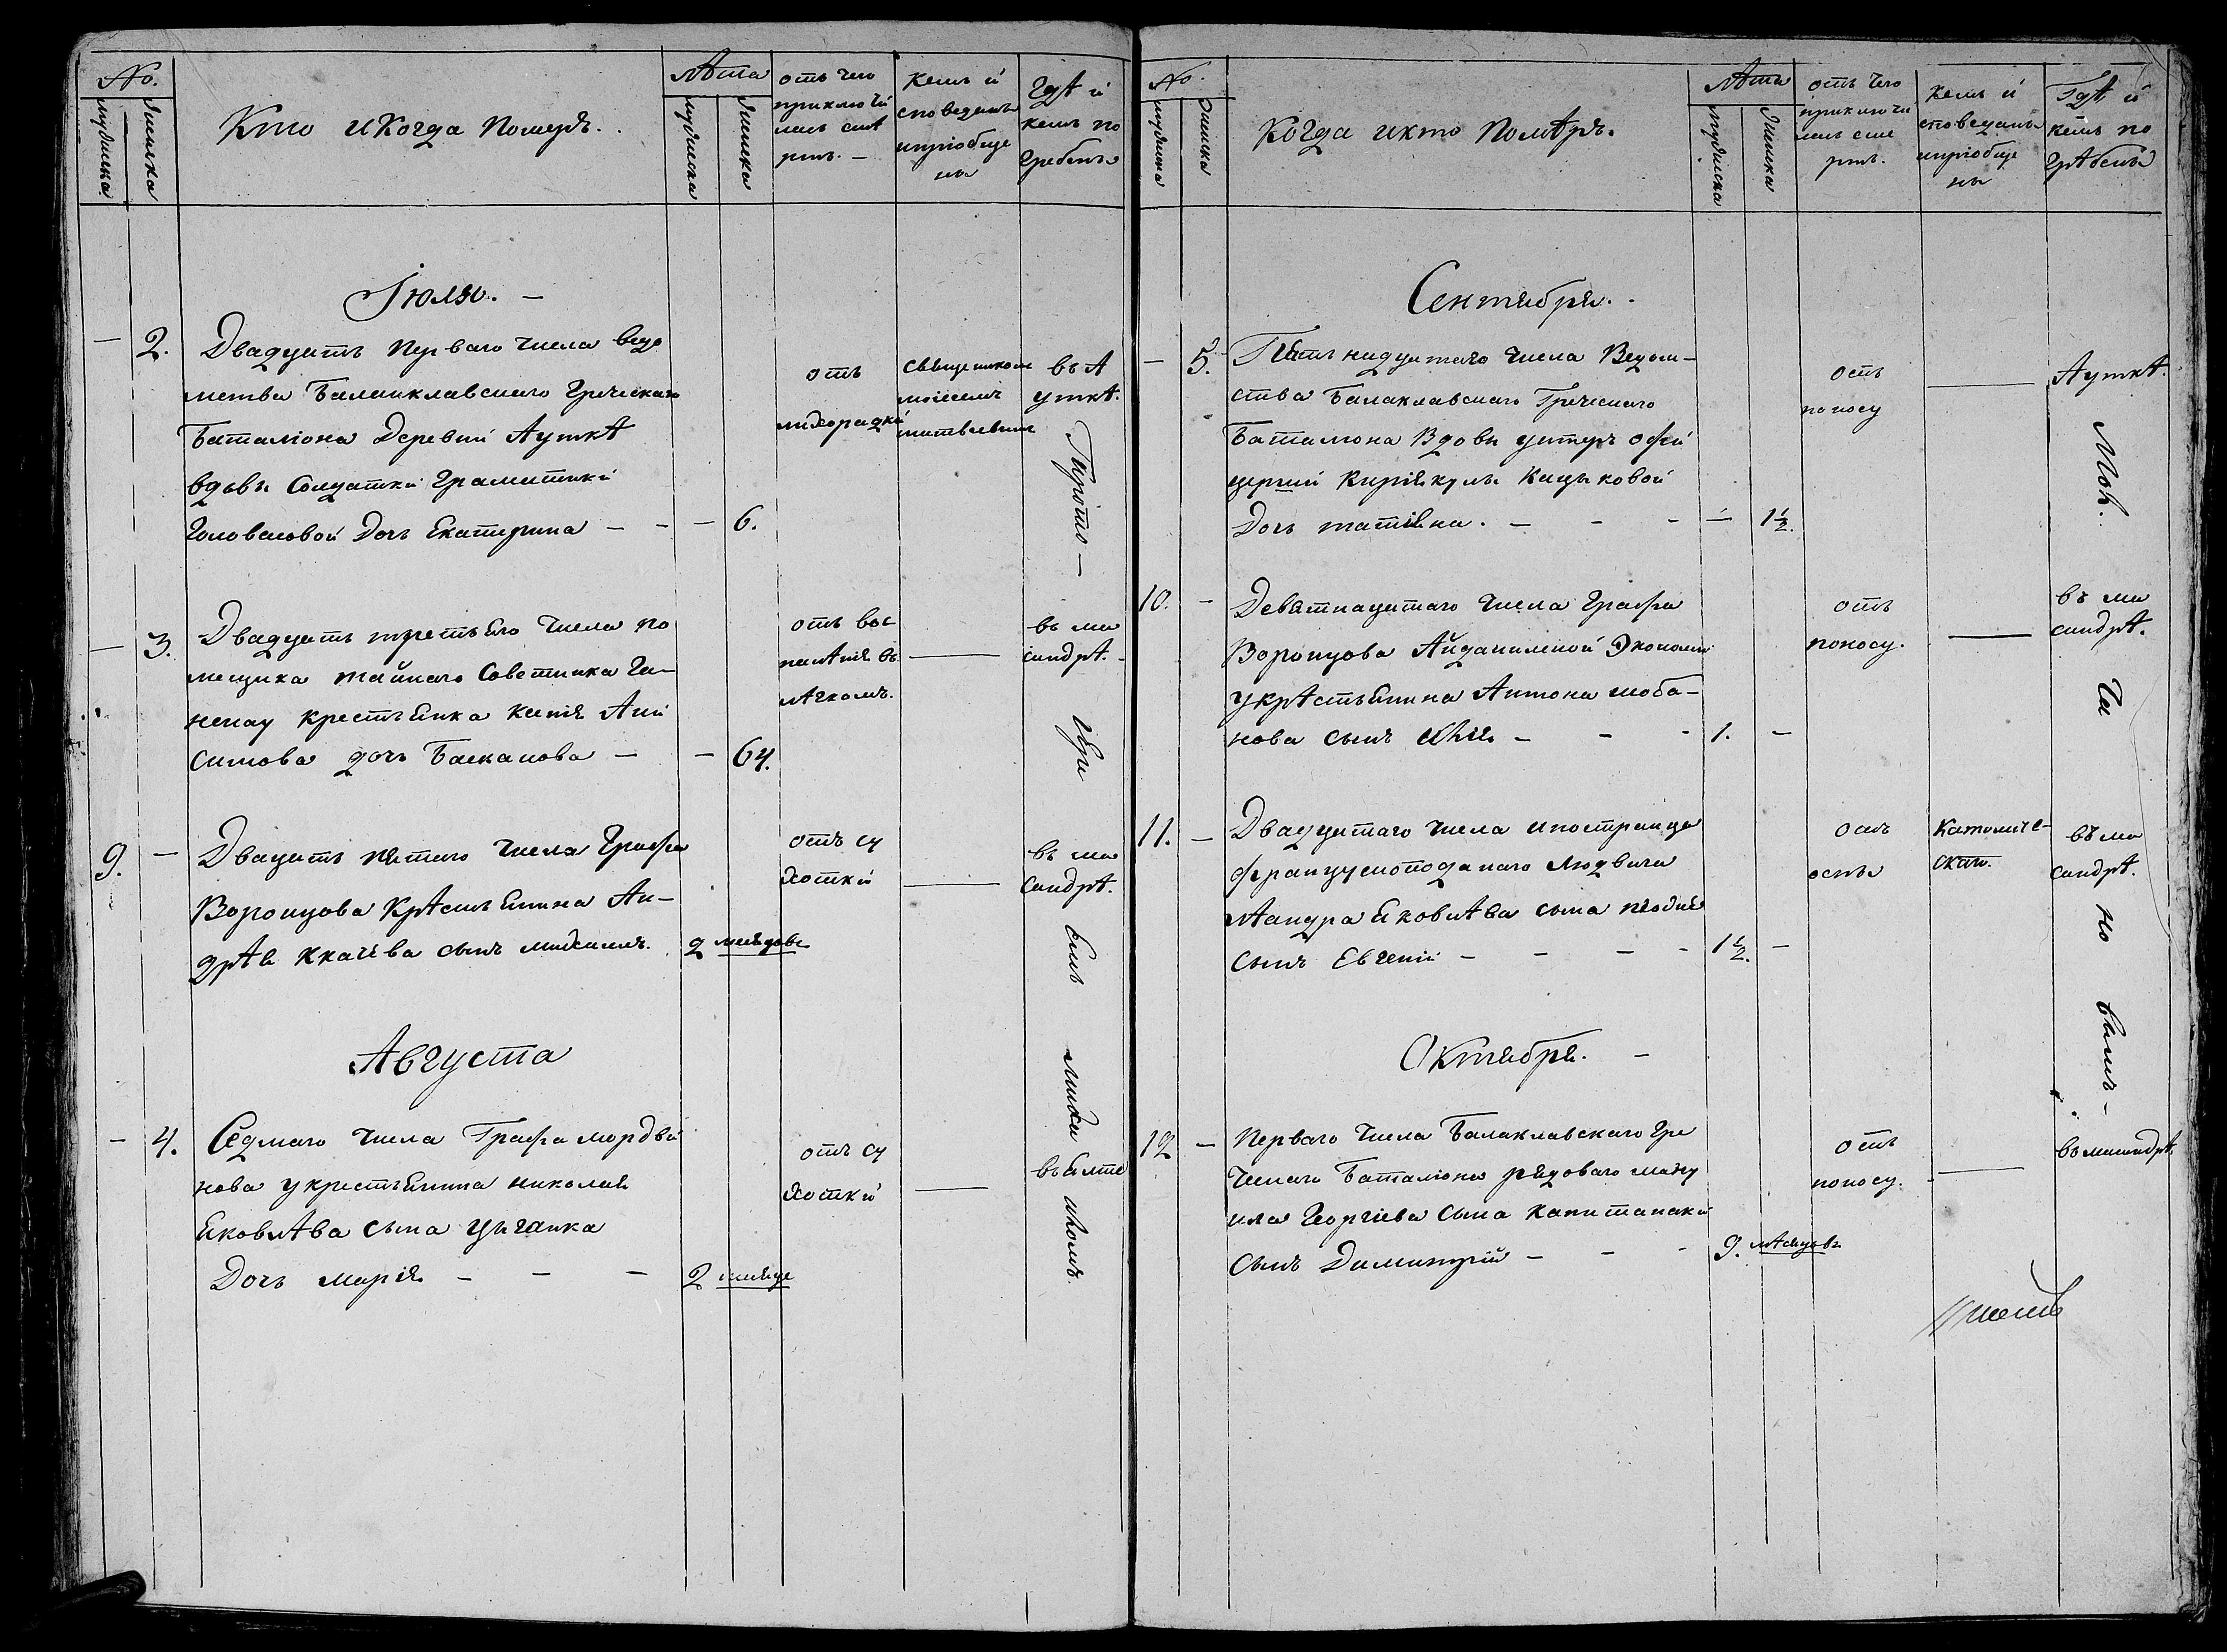 No.
мужеска
женска
Кто и когда помѣръ.
лѣта
мужеска
женска
отъ чего
приключи
лась смѣ
рть. —
кемъ и
споведанъ
и приобще
нъ
гдѣ и
кемъ по
гребенъ
Іюля. —
— 2. Двадцать перваго числа ведо
мства Балаклавскаго Греческаго
Баталіона деревни Аутки
вдовы солдатки
дочь Екатерина — — — 6.
отъ
лихорадки
въ А
уткѣ.
— 3. Двадцать третьяго числа по
мещика тайнаго советника
крестьянка
дочь — — 64.
отъ вос
паленія въ
легкомъ.
—
въ ма
сандрѣ. —
9. — Двацать пятаго числа Графа
Воронцова крѣстьянина Ан-
дрѣя сынъ михаилъ. 2
отъ су
хотки
—
въ ма
сандрѣ.
Августа
— 4. Седмаго числа Графа мордви
нова у крестьянина николая
Яковлѣва сына
Дочь марія — — — 2
отъ су
хотки
—
No.
мужеска
женска
Когда и кто помѣръ.
лѣта
мужеска
женска
отъ чего
приключи
лась сме
рть.
кемъ и
споведанъ
и приобще
нъ
Гдѣ и
кемъ по
грѣбенъ
Сентября. .
— 5. Пятьнадцатаго числа Ведом-
ства Балаклавскаго Греческаго
Баталіона вдовы унтеръ офи
церши
Дочь татіяна. — — — — 1½.
отъ
поносу
—
Ауткѣ.
10. — Девятнацатаго числа Графа
Воронцова Айданилской Экономіи
у крѣстьянина Антона лоба-
нова сынъ — — — 1. —
отъ
поносу.
—
въ ма
сандрѣ.
11. — Двадцатаго числа иностранца
французскоподанаго Людвига
Яковлѣва сына
сынъ Евгеній — — — 1½. —
отъ
оспы
католиче-
скаго
въ ма
сандрѣ.
Октября. —
12 — Перваго числа Балаклавскаго Гре
ческаго Баталіона рядоваго ману
ила Георгіева сына капитанаки
сынъ Димитрій — — — 9. мѣсяцовъ
отъ
поносу.
—
въ масандрѣ.